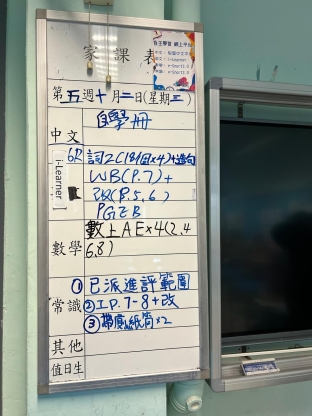 自主學習 網上平台
家課表
第五週十月二日(星期二)
自學冊
中文
6R
i-Learner
詞2C(8個×4)+造句
WB(P.7)+
改(P.5,6)
PGEB
數學
數上AE×4(2.4
6.8)
常識
①已派進評範圍
②I.P.7-8+改
③帶廁紙筒×2
其他
值日生